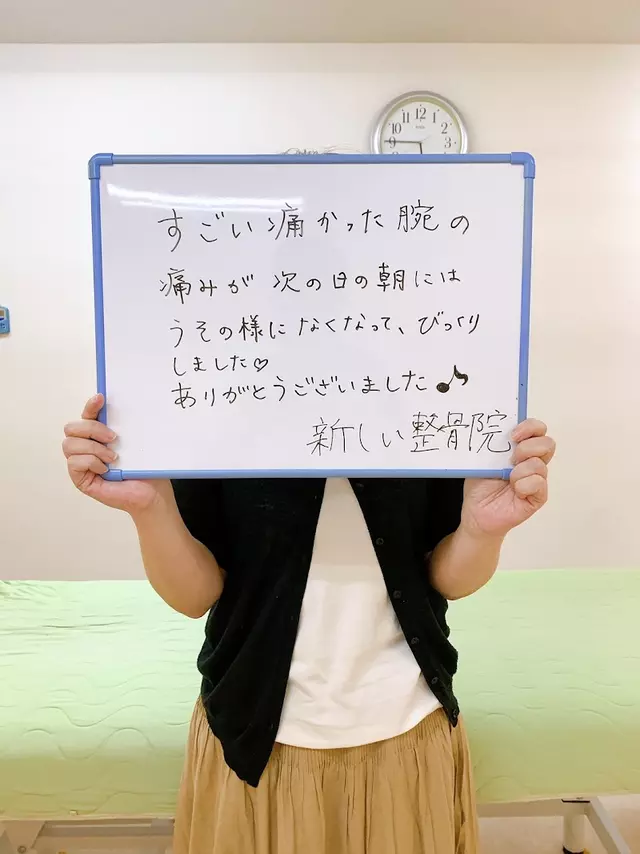 すごい痛かった腕の
痛みが次の日の朝には
うその様になくなって、びっくり
しました♡
ありがとうございました♪
新しい整骨院
10 11 12 1 2 3 9